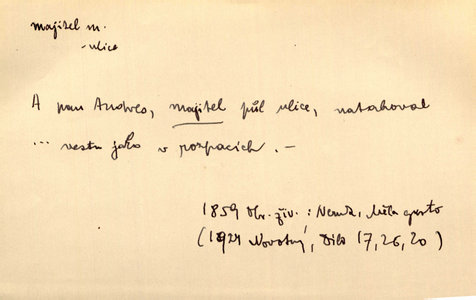 majitel m.
- ulice
A pan Andres, majitel půl ulice, natahoval
... vestu jako v rozpacích. -
1859 Obr. živ. : Neruda,
(1924 Novotný, Dílo 17, 26, 20)